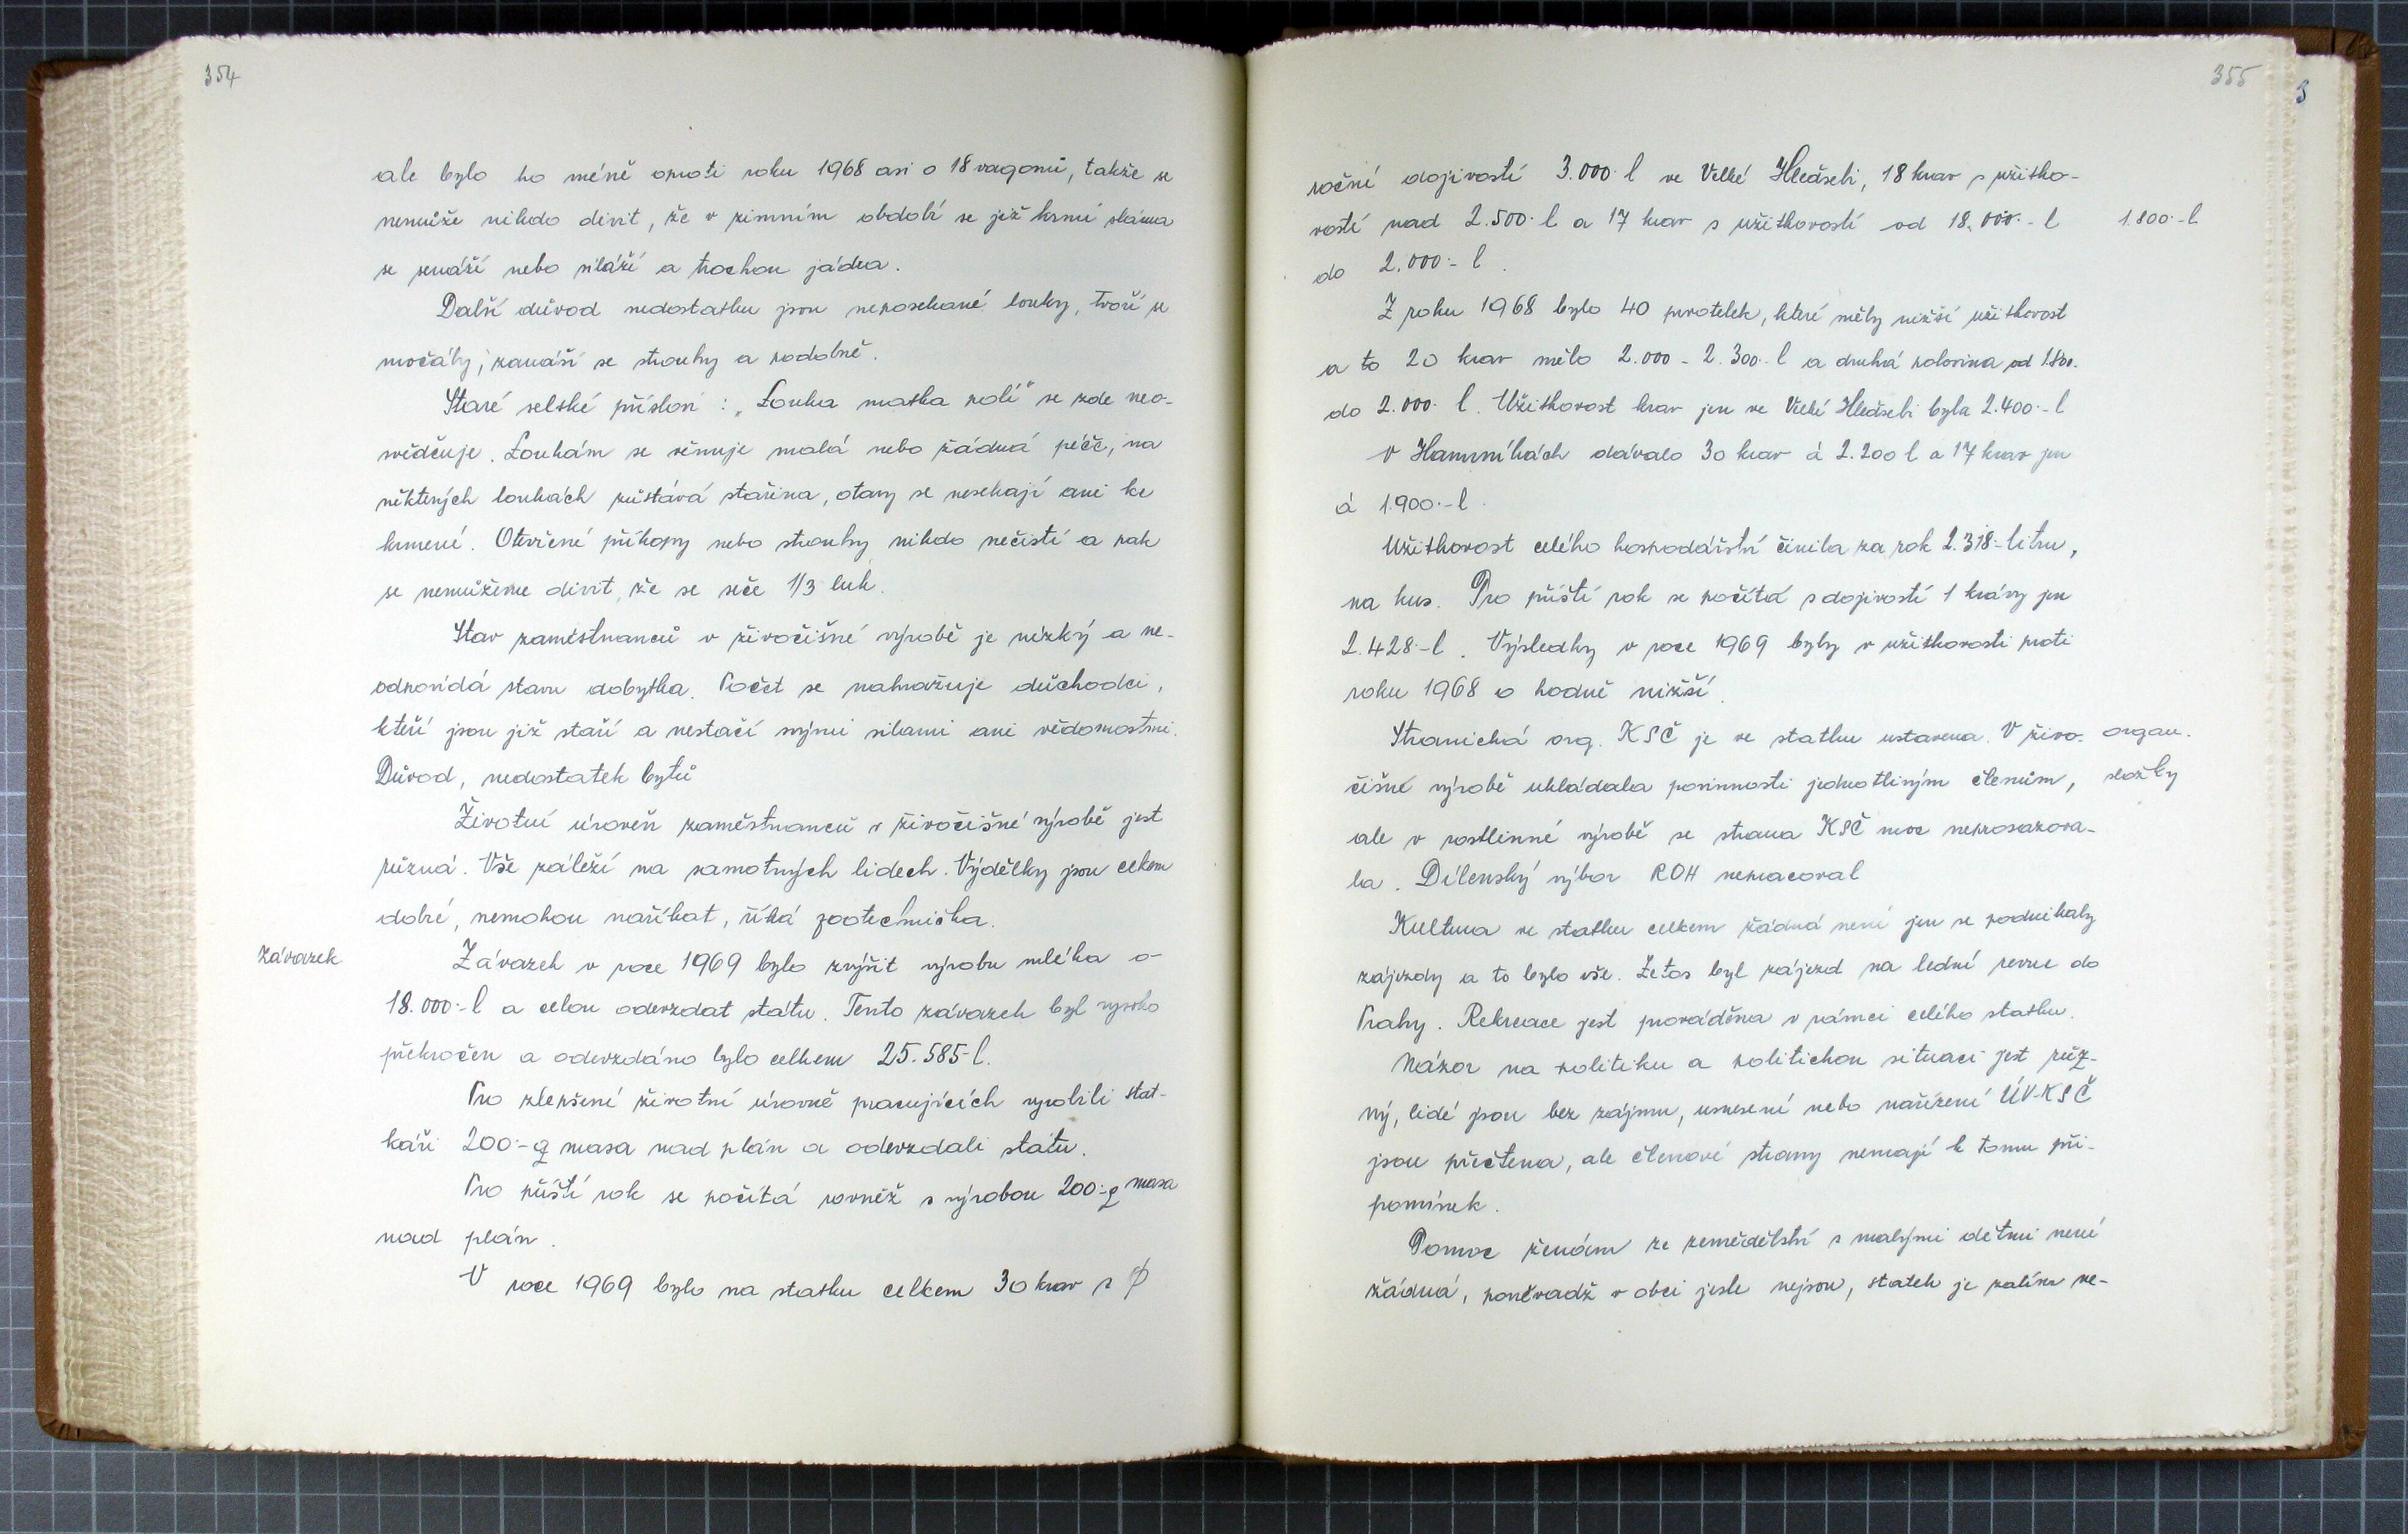 354
ale bylo ho méně oproti roku 1968 asi o 18 vagonů, takže se
nemůže nikdo divit, že v zimním období se již krmí sláma
se senáží nebo siláží a trochou jádra.
Další důvod nedostatku jsou neposekané louky, tvoří se
močály, zanáší se strouhy a podobně.
Staré selské přísloví: „Louka matka polí" se zde neo-
svědčuje. Loukám se věnuje malá nebo žádná péče, na
některých loukách zůstává stařina, otavy se nesekají ani ke
krmení. Otevřené příkopy nebo strouhy nikdo nečistí a pak
se nemůžeme divit, že se seče 1/3 luk.
Stav zaměstnanců v živočišné výrobě je nízký a ne-
odpovídá stavu dobytka. Počet se nahražuje důchodci,
kteří jsou již staří a nestačí svými silami ani vědomostmi.
Důvod, nedostatek bytů
Životní úroveň zaměstnanců v živočišné výrobě jest
různá. Vše záleží na samotných lidech. Výdělky jsou celkem
dobré, nemohou naříkat, říká zootechnička.
Závazek
Závazek v roce 1969 bylo zvýšit výrobu mléka o-
18.000.-l a celou odevzdat státu. Tento závazek byl vysoko
překročen a odevzdáno bylo celkem 25.585-l.
Pro zlepšení životní úrovně pracujících vyrobili stat-
káři 200.-q masa nad plán a odevzdali státu.
Pro příští rok se počítá rovněž s výrobou 200.-q masa
nad plán.
V roce 1969 bylo na statku celkem 30 krav s ϕ
355
3
roční dojivostí 3.000. l ve Velké Hleďsebi, 18 krav s užitko-
vostí nad 2.500. l a 17 krav s užitkovostí od 18.000.-l 1.800.-l
do 2.000.- l.
Z roku 1968 bylo 40 prvotelek, které měly nižší užitkovost
a to 20 krav mělo 2.000 - 2.300. l a druhá polovina od 1.800.
do 2.000. l. Užitkovost krav jen ve Velké Hleďsebi byla 2.400.-l
V Hamrníkách dávalo 30 krav á 2.200 l a 17 krav jen
á 1.900.-l.
Užitkovost celého hospodářství činila za rok 2.318.-litru,
na kus. Pro příští rok se počítá s dojivostí 1 krávy jen
2.428.-l. Výsledky v roce 1969 byly v užitkovosti proti
roku 1968 o hodně nižší.
Stranická org. KSČ je ve statku ustavena. V živo- organ.
čišné výrobě ukládala povinnosti jednotlivým členům, složky
ale v rostlinné výrobě se strana KSČ moc neprosazova-
la. Dílenský výbor ROH nepracoval
Kultura ve statku celkem žádná není jen se podnikaly
zájezdy a to bylo vše. Letos byl zájezd na lední revue do
Prahy. Rekreace jest prováděna v rámci celého statku.
Názor na politiku a politickou situaci jest růz-
ný, lidé jsou bez zájmu, usnesení nebo nařízení ÚV-KSČ
jsou přečtena, ale členové strany nemají k tomu při-
pomínek.
Pomoc ženám ze zemědělství s malými dětmi není
žádná, poněvadž v obci jesle nejsou, statek je zatím ne-